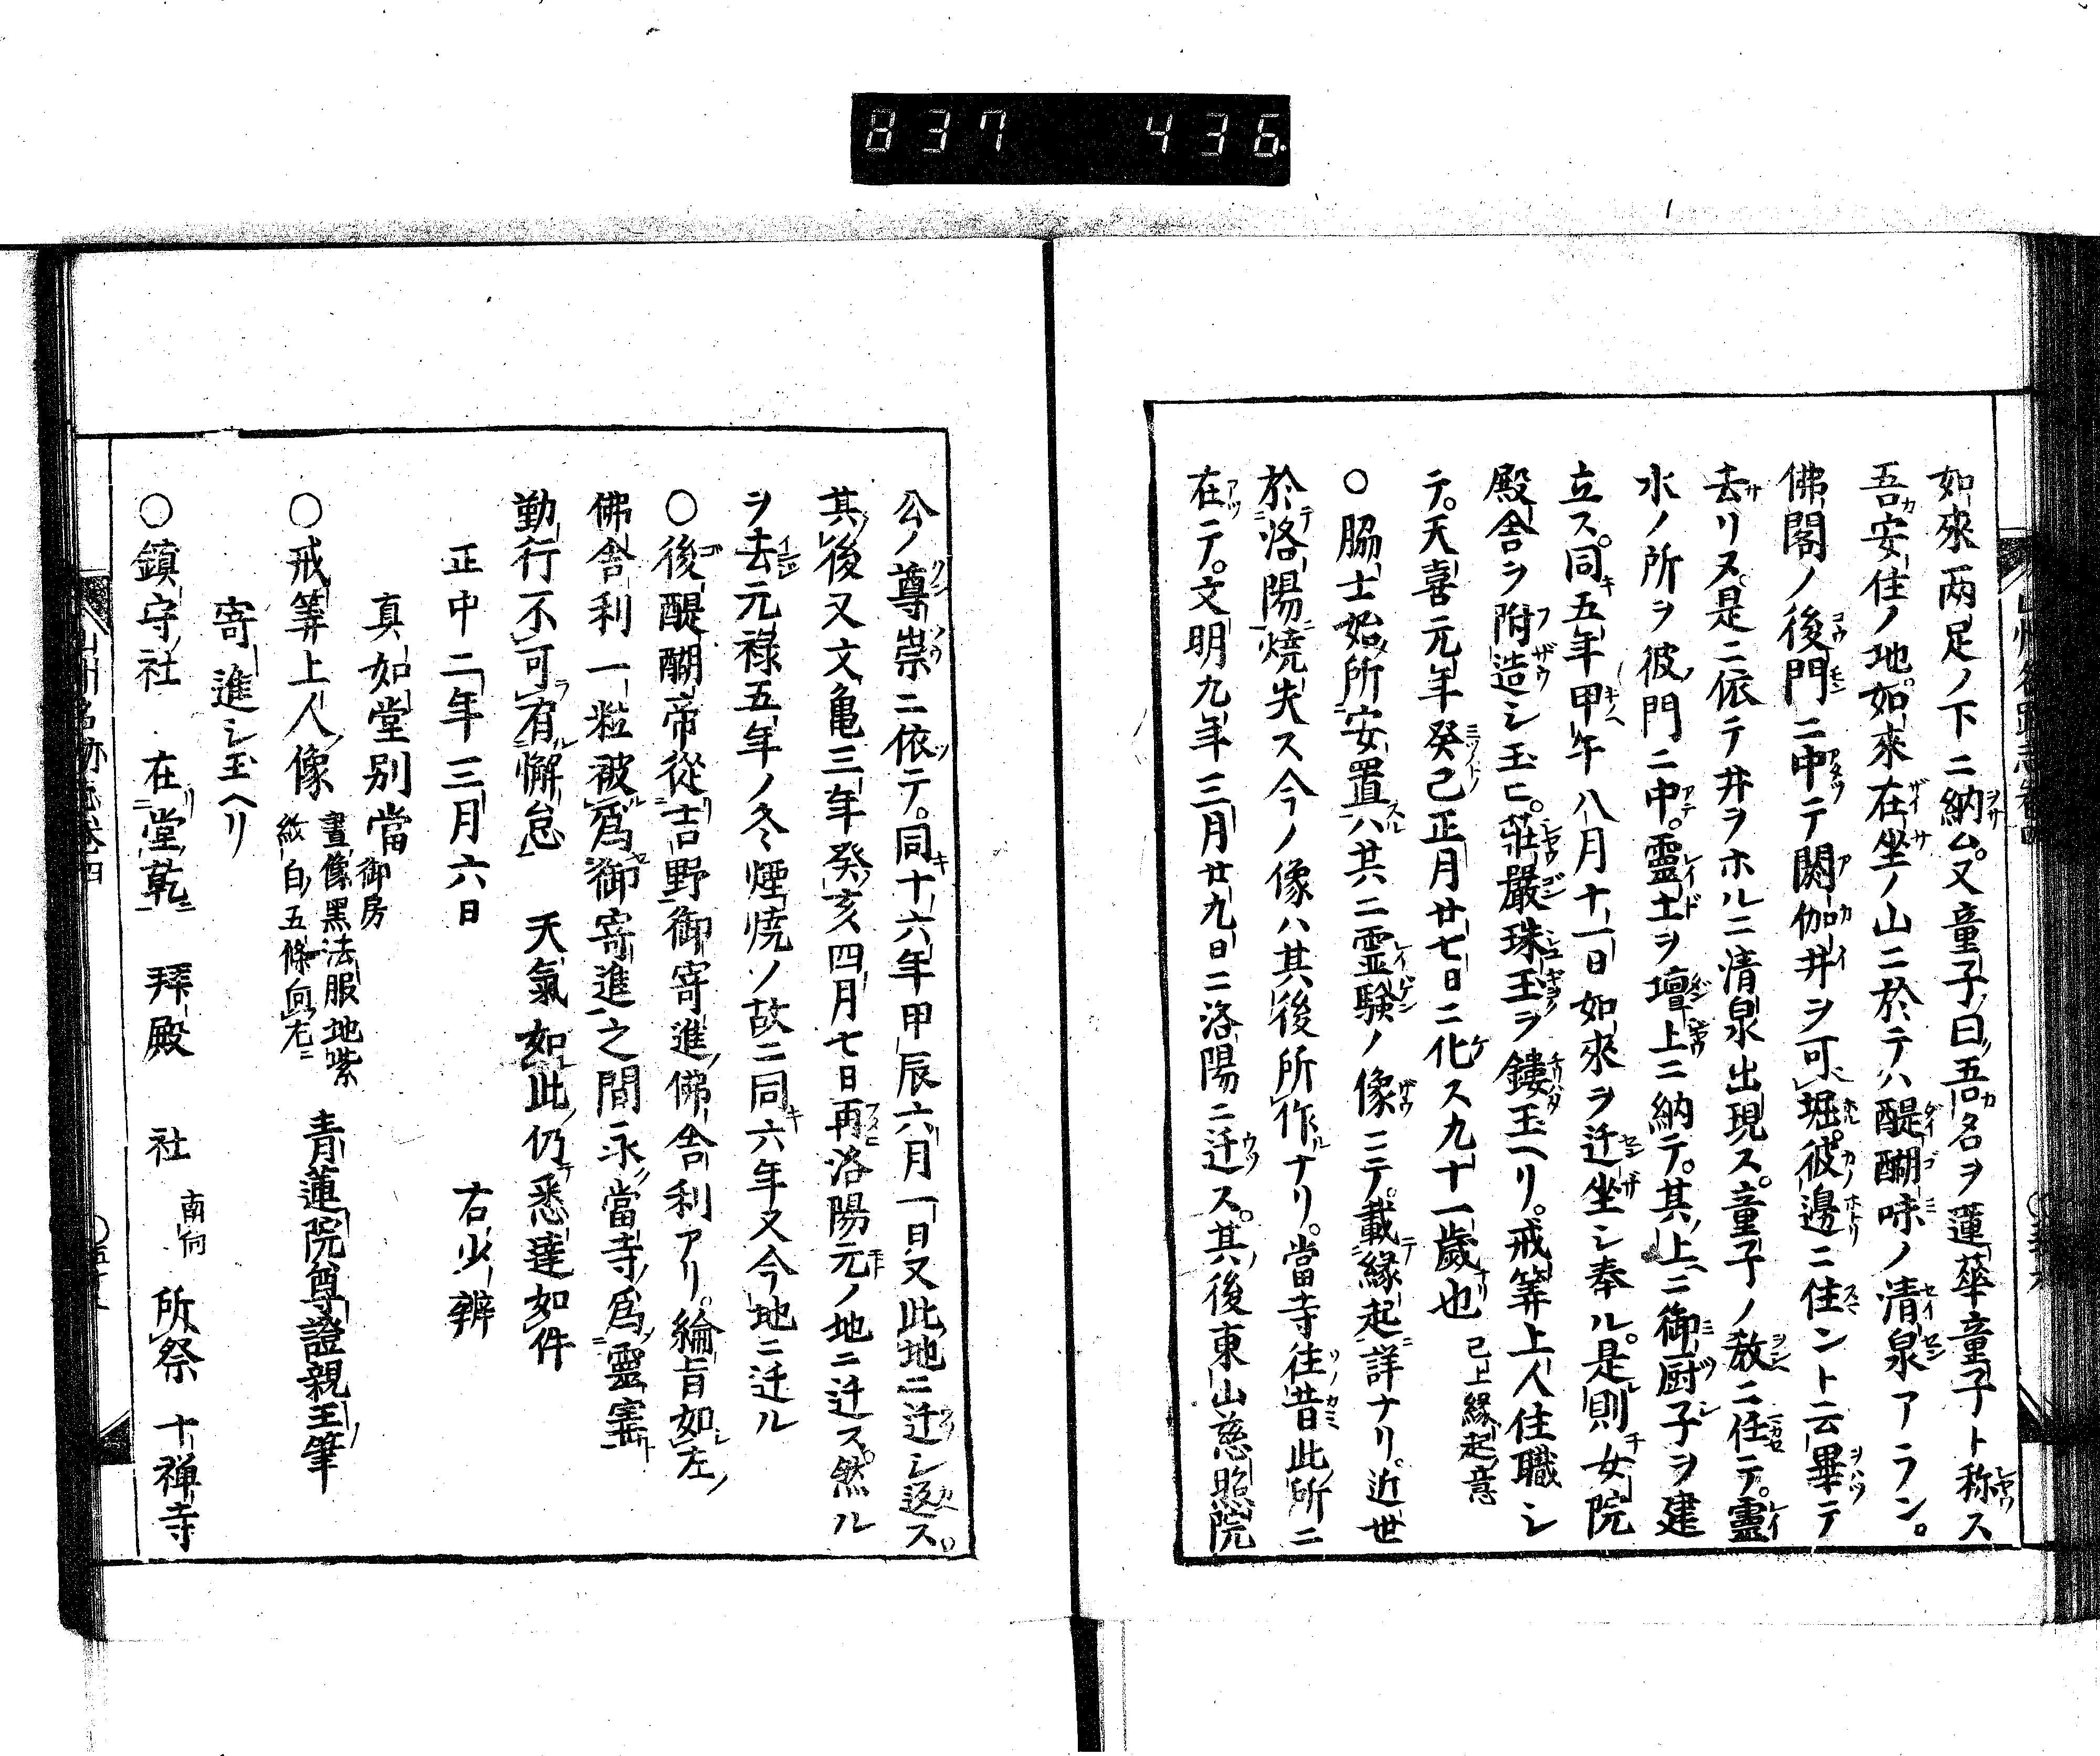 837 436
如來兩足ノ下ニ納ム又童子ノ曰吾名ヲ蓮華童子ト称ス
吾安住ノ地如來在坐ノ山ニ於テハ醍醐味ノ清泉アラン。
佛閣ノ後門ニ中テ閼伽井ヲ可堀彼邊ニ住ント云畢テ
去リヌ是ニ依テ井ヲホルニ清泉出現ス。童子ノ敎ニ任テ。靈
水ノ所ヲ彼門ニ中。靈土ヲ壇上ニ納テ。其上ニ御厨子ヲ建
立ス。同五年甲午八月十一日如來ヲ迁坐シ奉ル。是則女院
殿舎ヲ附造シ玉ヒ。荘嚴珠玉ヲ鏤玉ヘリ。戒筭上人住職シ
テ。天喜元年癸巳正月廿七日ニ化ス九十一歲也 已上縁起ノ意
○脇士始所安置ハ共ニ霊験ノ像ニテ。載縁起詳ナリ。近世
於洛陽焼失ス今ノ像ハ其後所作ナリ。當寺往昔此所ニ
在テ。文明九年三月廿九日ニ洛陽ニ迁ス。其後東山慈照院
公ノ尊崇ニ依テ。同十六年甲辰六月一日又此地ニ迁シ返ス
其後又文亀三年癸亥四月七日再洛陽元ノ地ニ迁ス。然ル
ヲ去元禄五年ノ冬煙焼ソ故ニ同六年又今ノ地ニ迁ル
○後醍醐帝從吉野御寄進ノ佛舎利アリ。綸旨如左
佛舎利一粒被爲御寄進之間永當寺爲靈寳
勤行不可有懈怠 天氣如此仍悉達如件
正中二年三月六日 右少辨
真如堂別當御房
○戒筭上人像 畫像黒法服地紫紋白五條向左ニ 青蓮院尊證親王筆
寄進シ玉ヘリ
○鎮守社 在堂乾 拜殿 社 南向 所祭十禅寺